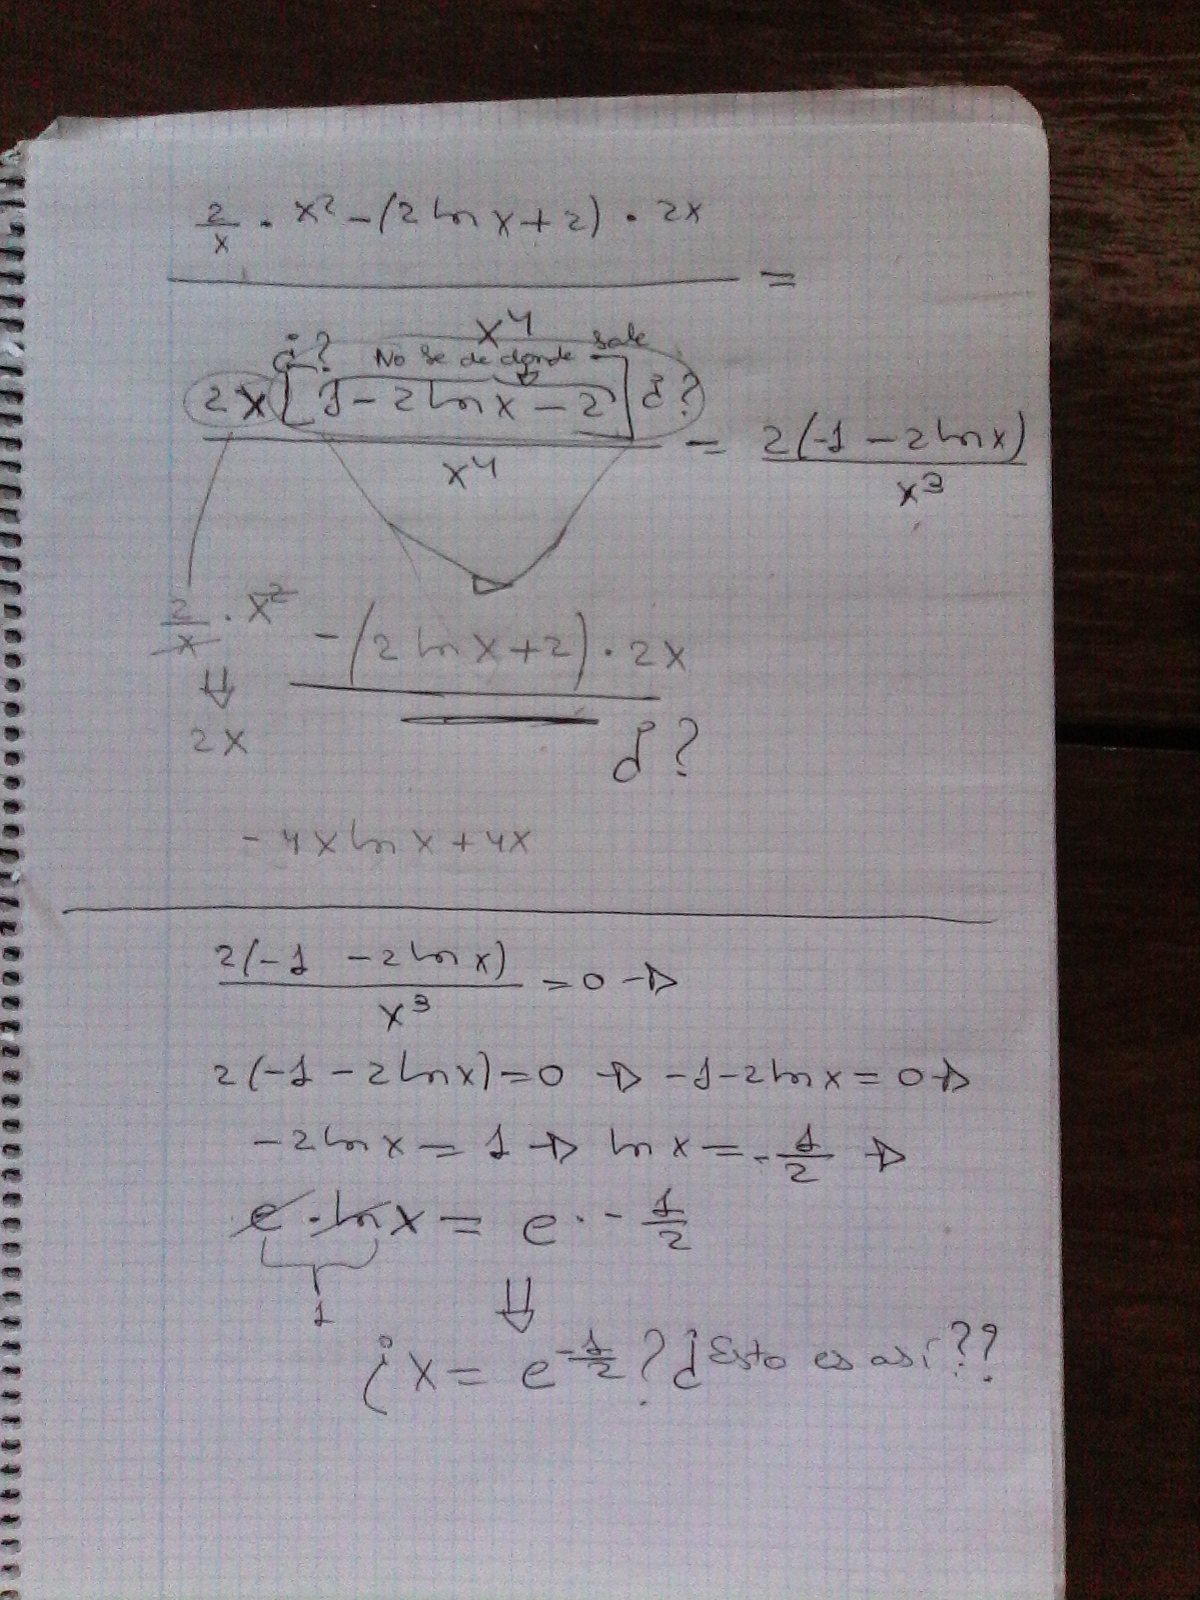 2/x · x² - (2 ln x + 2) · 2x
=
x⁴
¿? No se de donde sale
2x [1 - 2 ln x - 2] ¿?
x⁴
= 2(-1 - 2 ln x)
x³
2/x · x² - (2 ln x + 2) · 2x
⇓
2x
¿?
- 4x ln x + 4x
2(-1 - 2 ln x)
x³
= 0 →
2(-1 - 2 ln x) = 0 → -1 - 2 ln x = 0 →
-2 ln x = 1 → ln x = - 1/2 →
e · ln x = e · - 1/2
1
⇓
¿x = e^(-1/2)? ¿Esto es así??